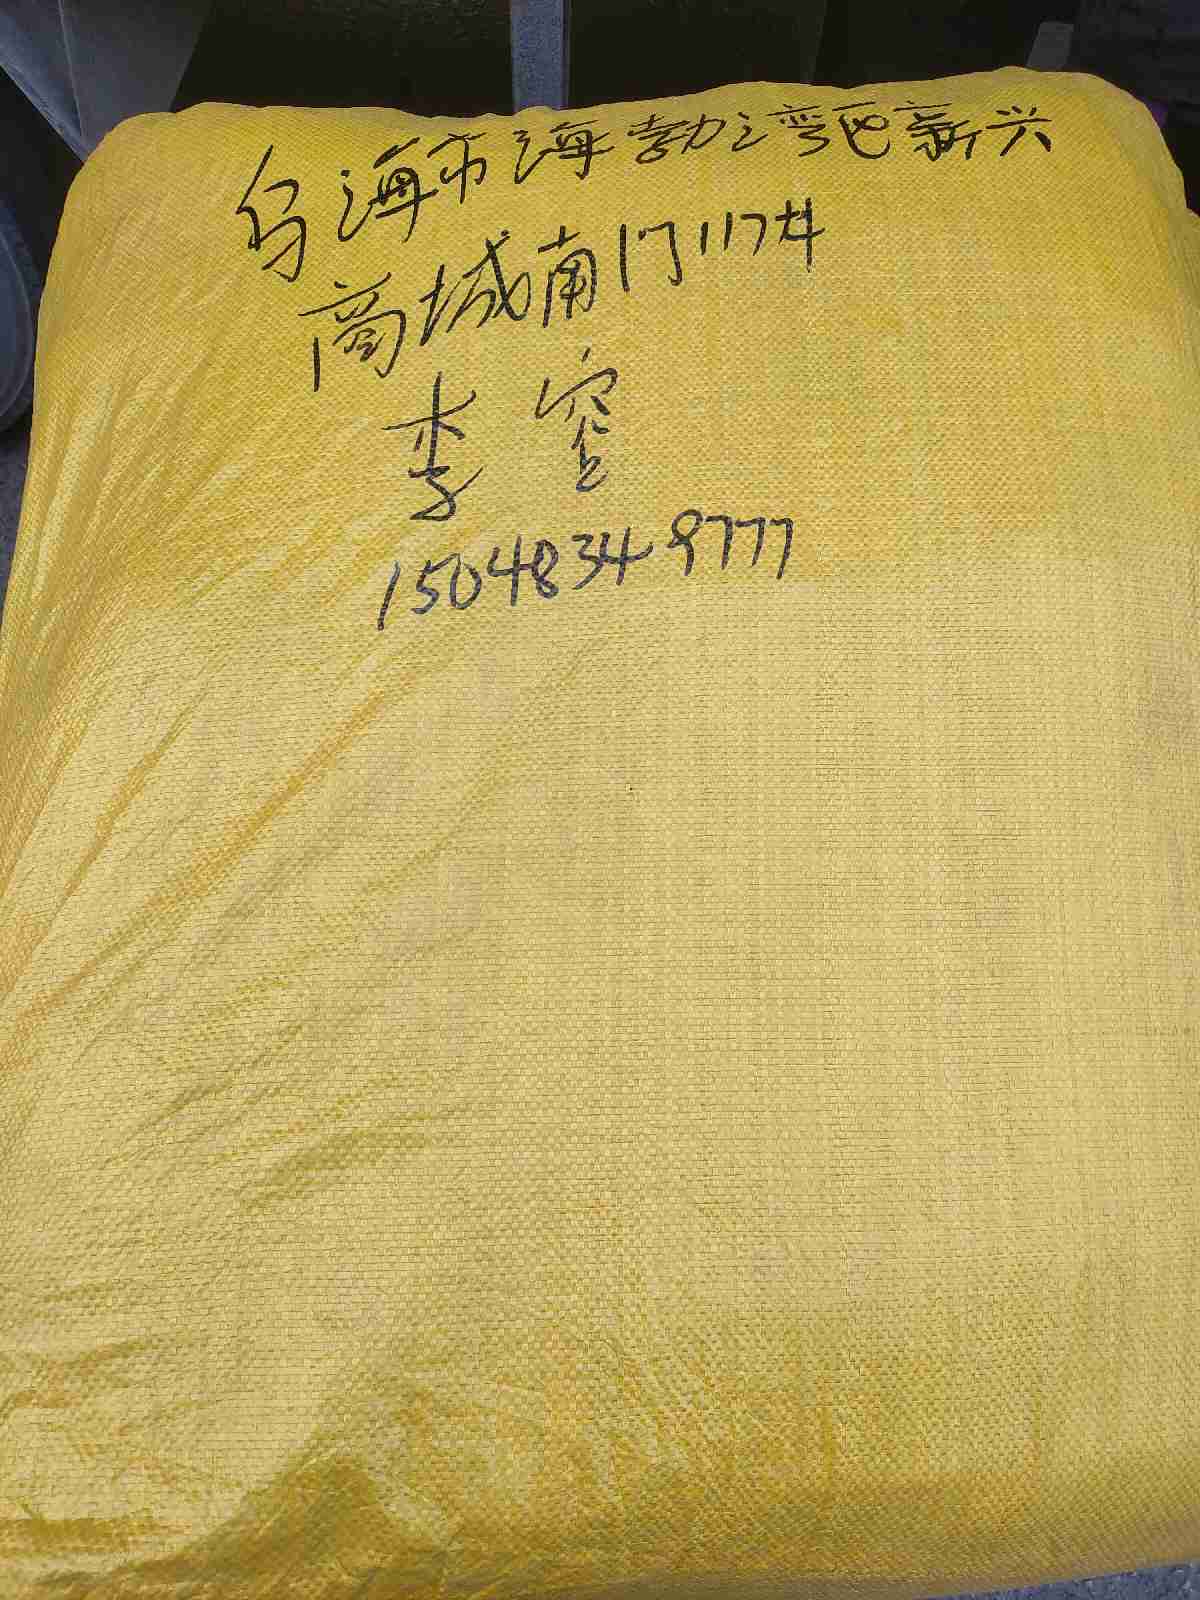 乌海市海勃湾区新兴
商城南门117#
李空
15048349777